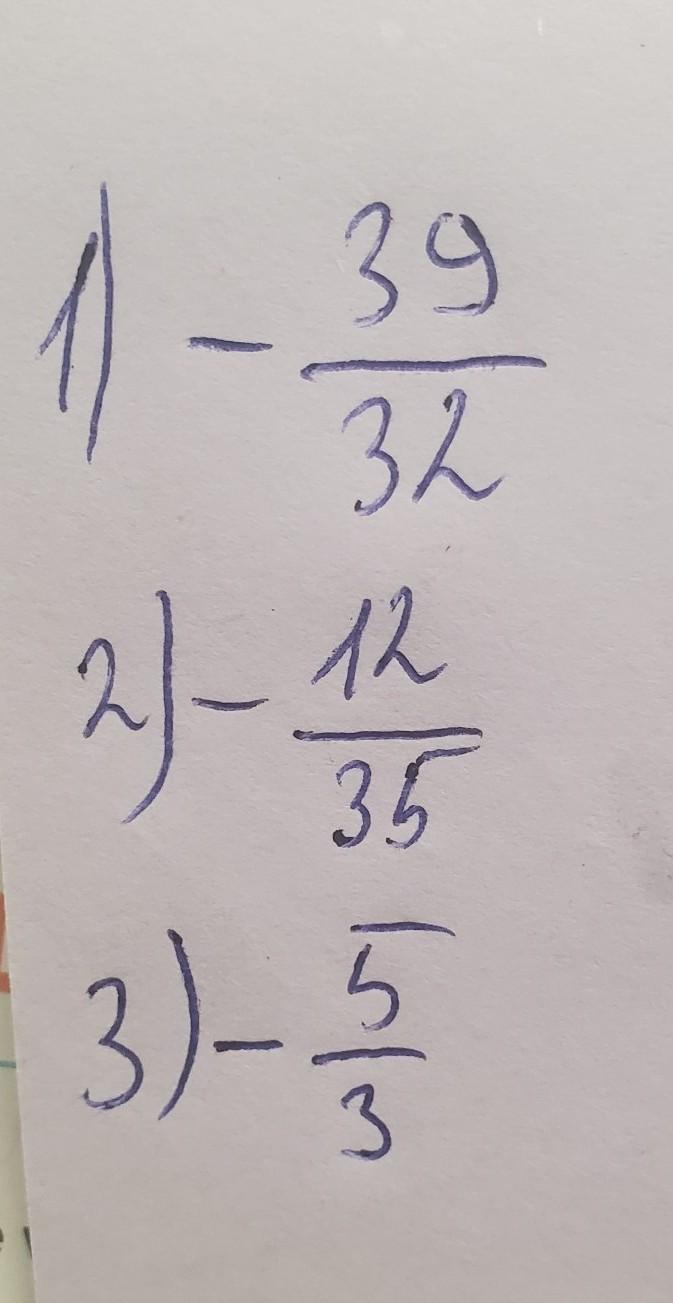 1) - 39/32
2) - 12/35
3) - 5/3